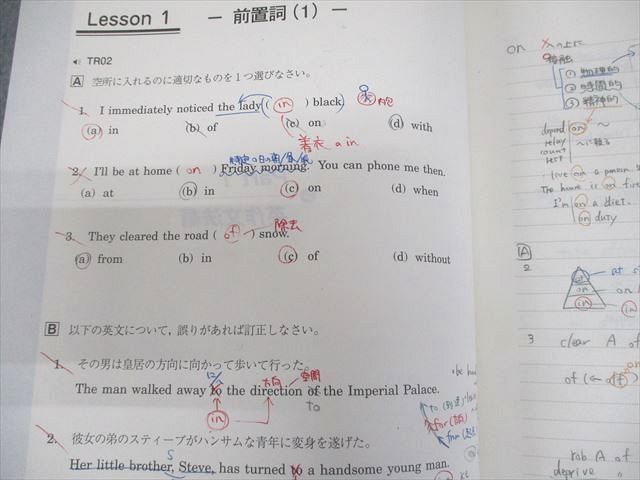 Lesson 1 — 前置詞（1）—
TR02
A 空所に入れるのに適切なものを1つ選びなさい。
1. I immediately noticed the lady ( in ) black.
(a) in (b) of (c) on (d) with
着衣の in
特定の日の朝/昼/夜
2. I'll be at home ( on ) Friday morning. You can phone me then.
(a) at (b) in (c) on (d) when
除去
3. They cleared the road ( of ) snow.
(a) from (b) in (c) of (d) without
B 以下の英文について，誤りがあれば訂正しなさい。
1. その男は皇居の方向に向かって歩いて行った。
方向 空間
The man walked away to the direction of the Imperial Palace.
in to
2. 彼女の弟のスティーブがハンサムな青年に変身を遂げた。
S
Her little brother, Steve, has turned to a handsome young man.
on
接触
① 物理的
② 時間的
③ 精神的
depend on ~
rely
count
rest
~に頼る
live on
The house is on fire
I'm on a diet.
on duty
A
2
at
on
in
3 clear A of
of (← off)
rob A of
deprive